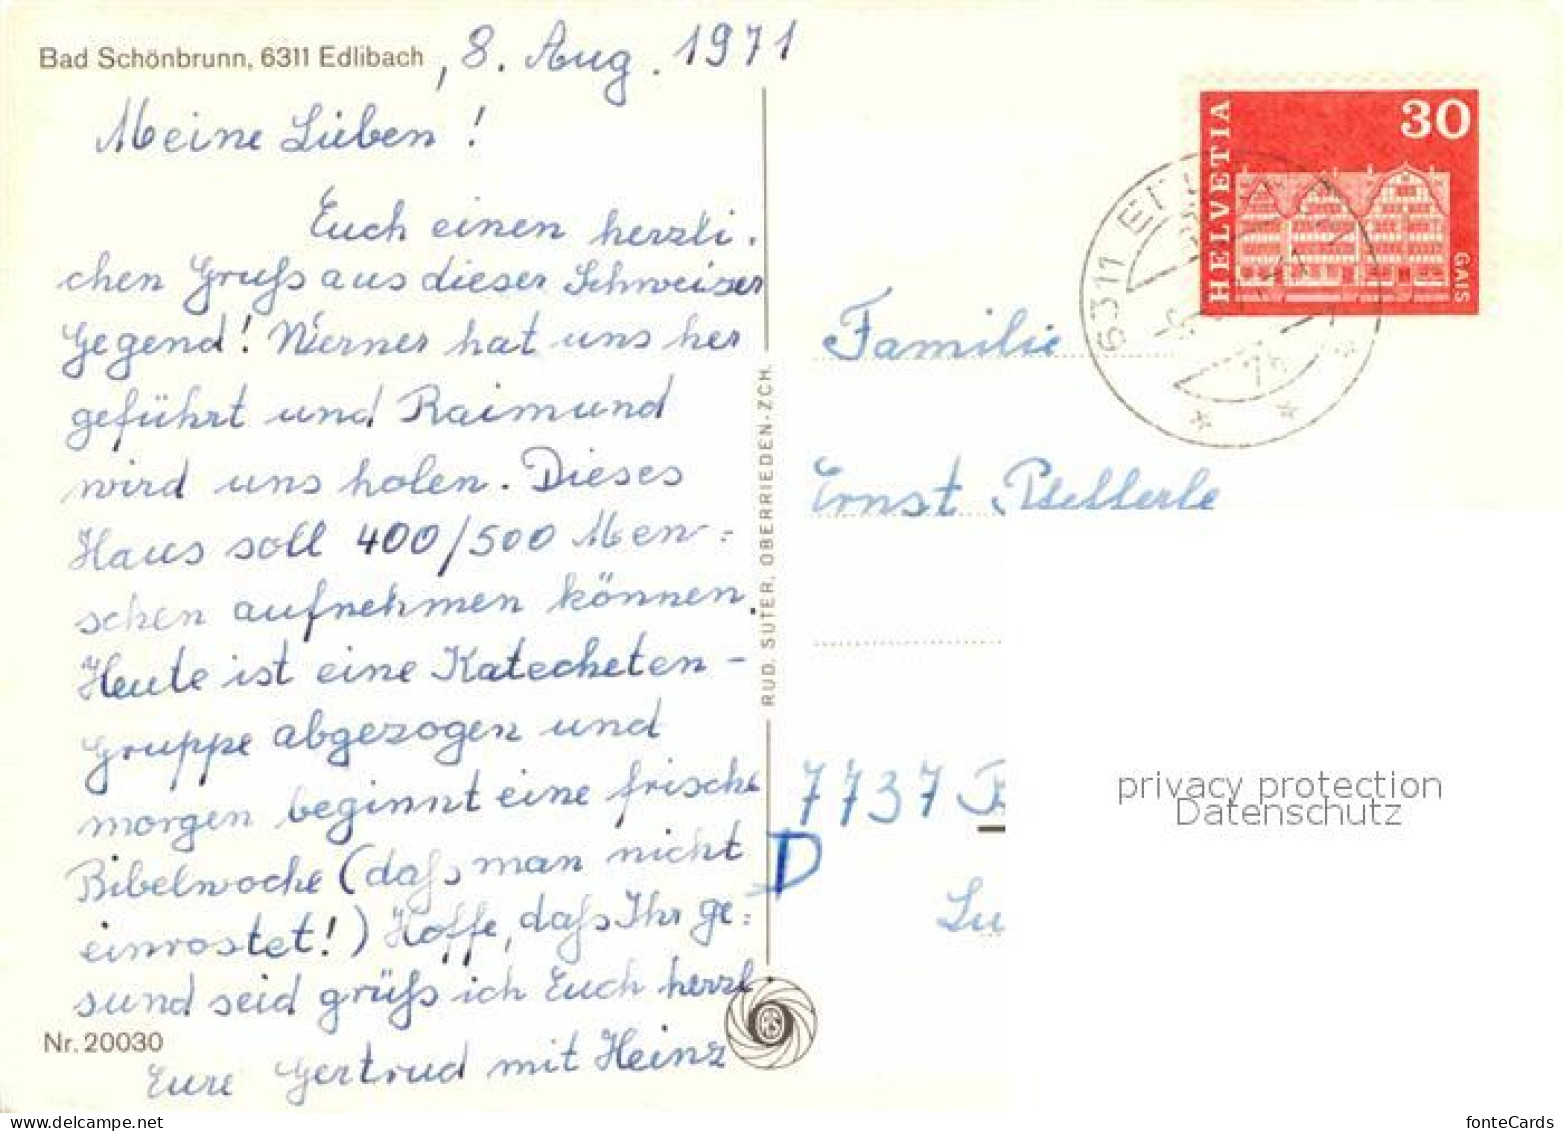 Bad Schönbrunn, 6311 Edlibach , 8. Aug. 1971
Meine Lieben!
Euch einen herzli.
chen Gruß aus dieser Schweizer
Gegend! Werner hat uns her
geführt und Raimund
wird uns holen. Dieses
Haus soll 400/500 Men=
schen aufnehmen können.
Heute ist eine Katecheten-
gruppe abgezogen und
morgen beginnt eine frische
Bibelwoche (daß man nicht
einrostet!) Hoffe, daß Ihr ge=
sund seid grüß ich Euch herzl.
Nr. 20030
Eure Gertrud mit Heinz
RUD. SUTER, OBERRIEDEN-ZCH.
HELVETIA
30
GAIS
6311
Familie
Ernst
7737
D
privacy protection
Datenschutz
fonteCards
www.delcampe.net